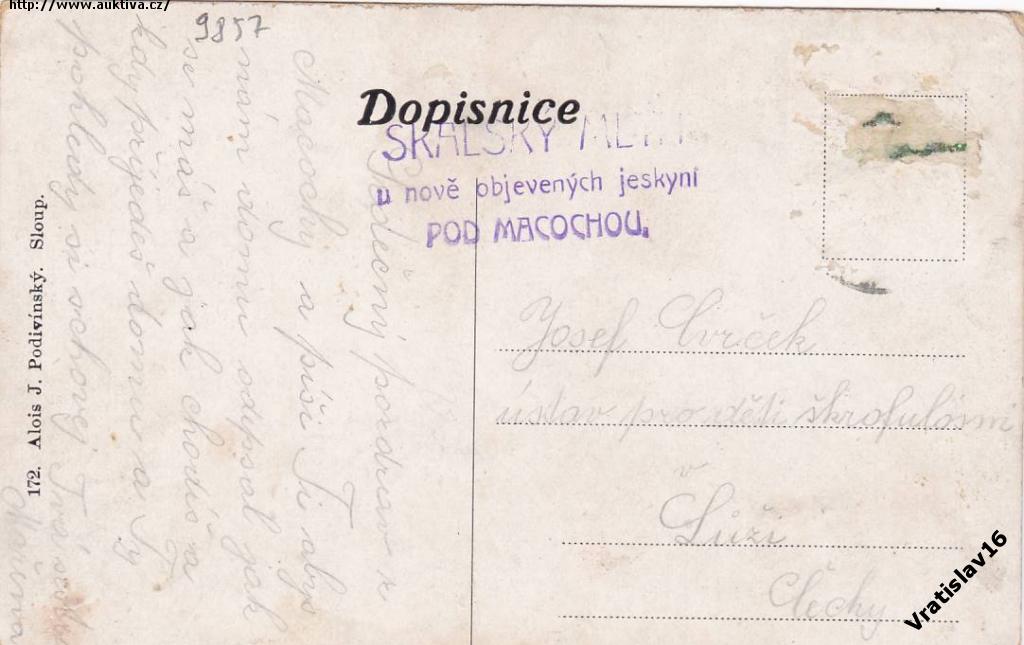 http://www.auktiva.cz/
9857
Dopisnice
SKALSKÝ MLÝN
u nově objevených jeskyní
POD MACOCHOU.
Srdečný pozdrav z
Macochy a píši Ti aby
nám domu odpsal jak
se máš a jak chodíš a
kdy přijedeš domu a Ty
pohledy si schovej Tvá
Mařena
172. Alois J. Podivínský. Sloup.
Josef Cvrček
ústav pro děti škrofulósní
v
Lůži
Čechy
Vratislav16